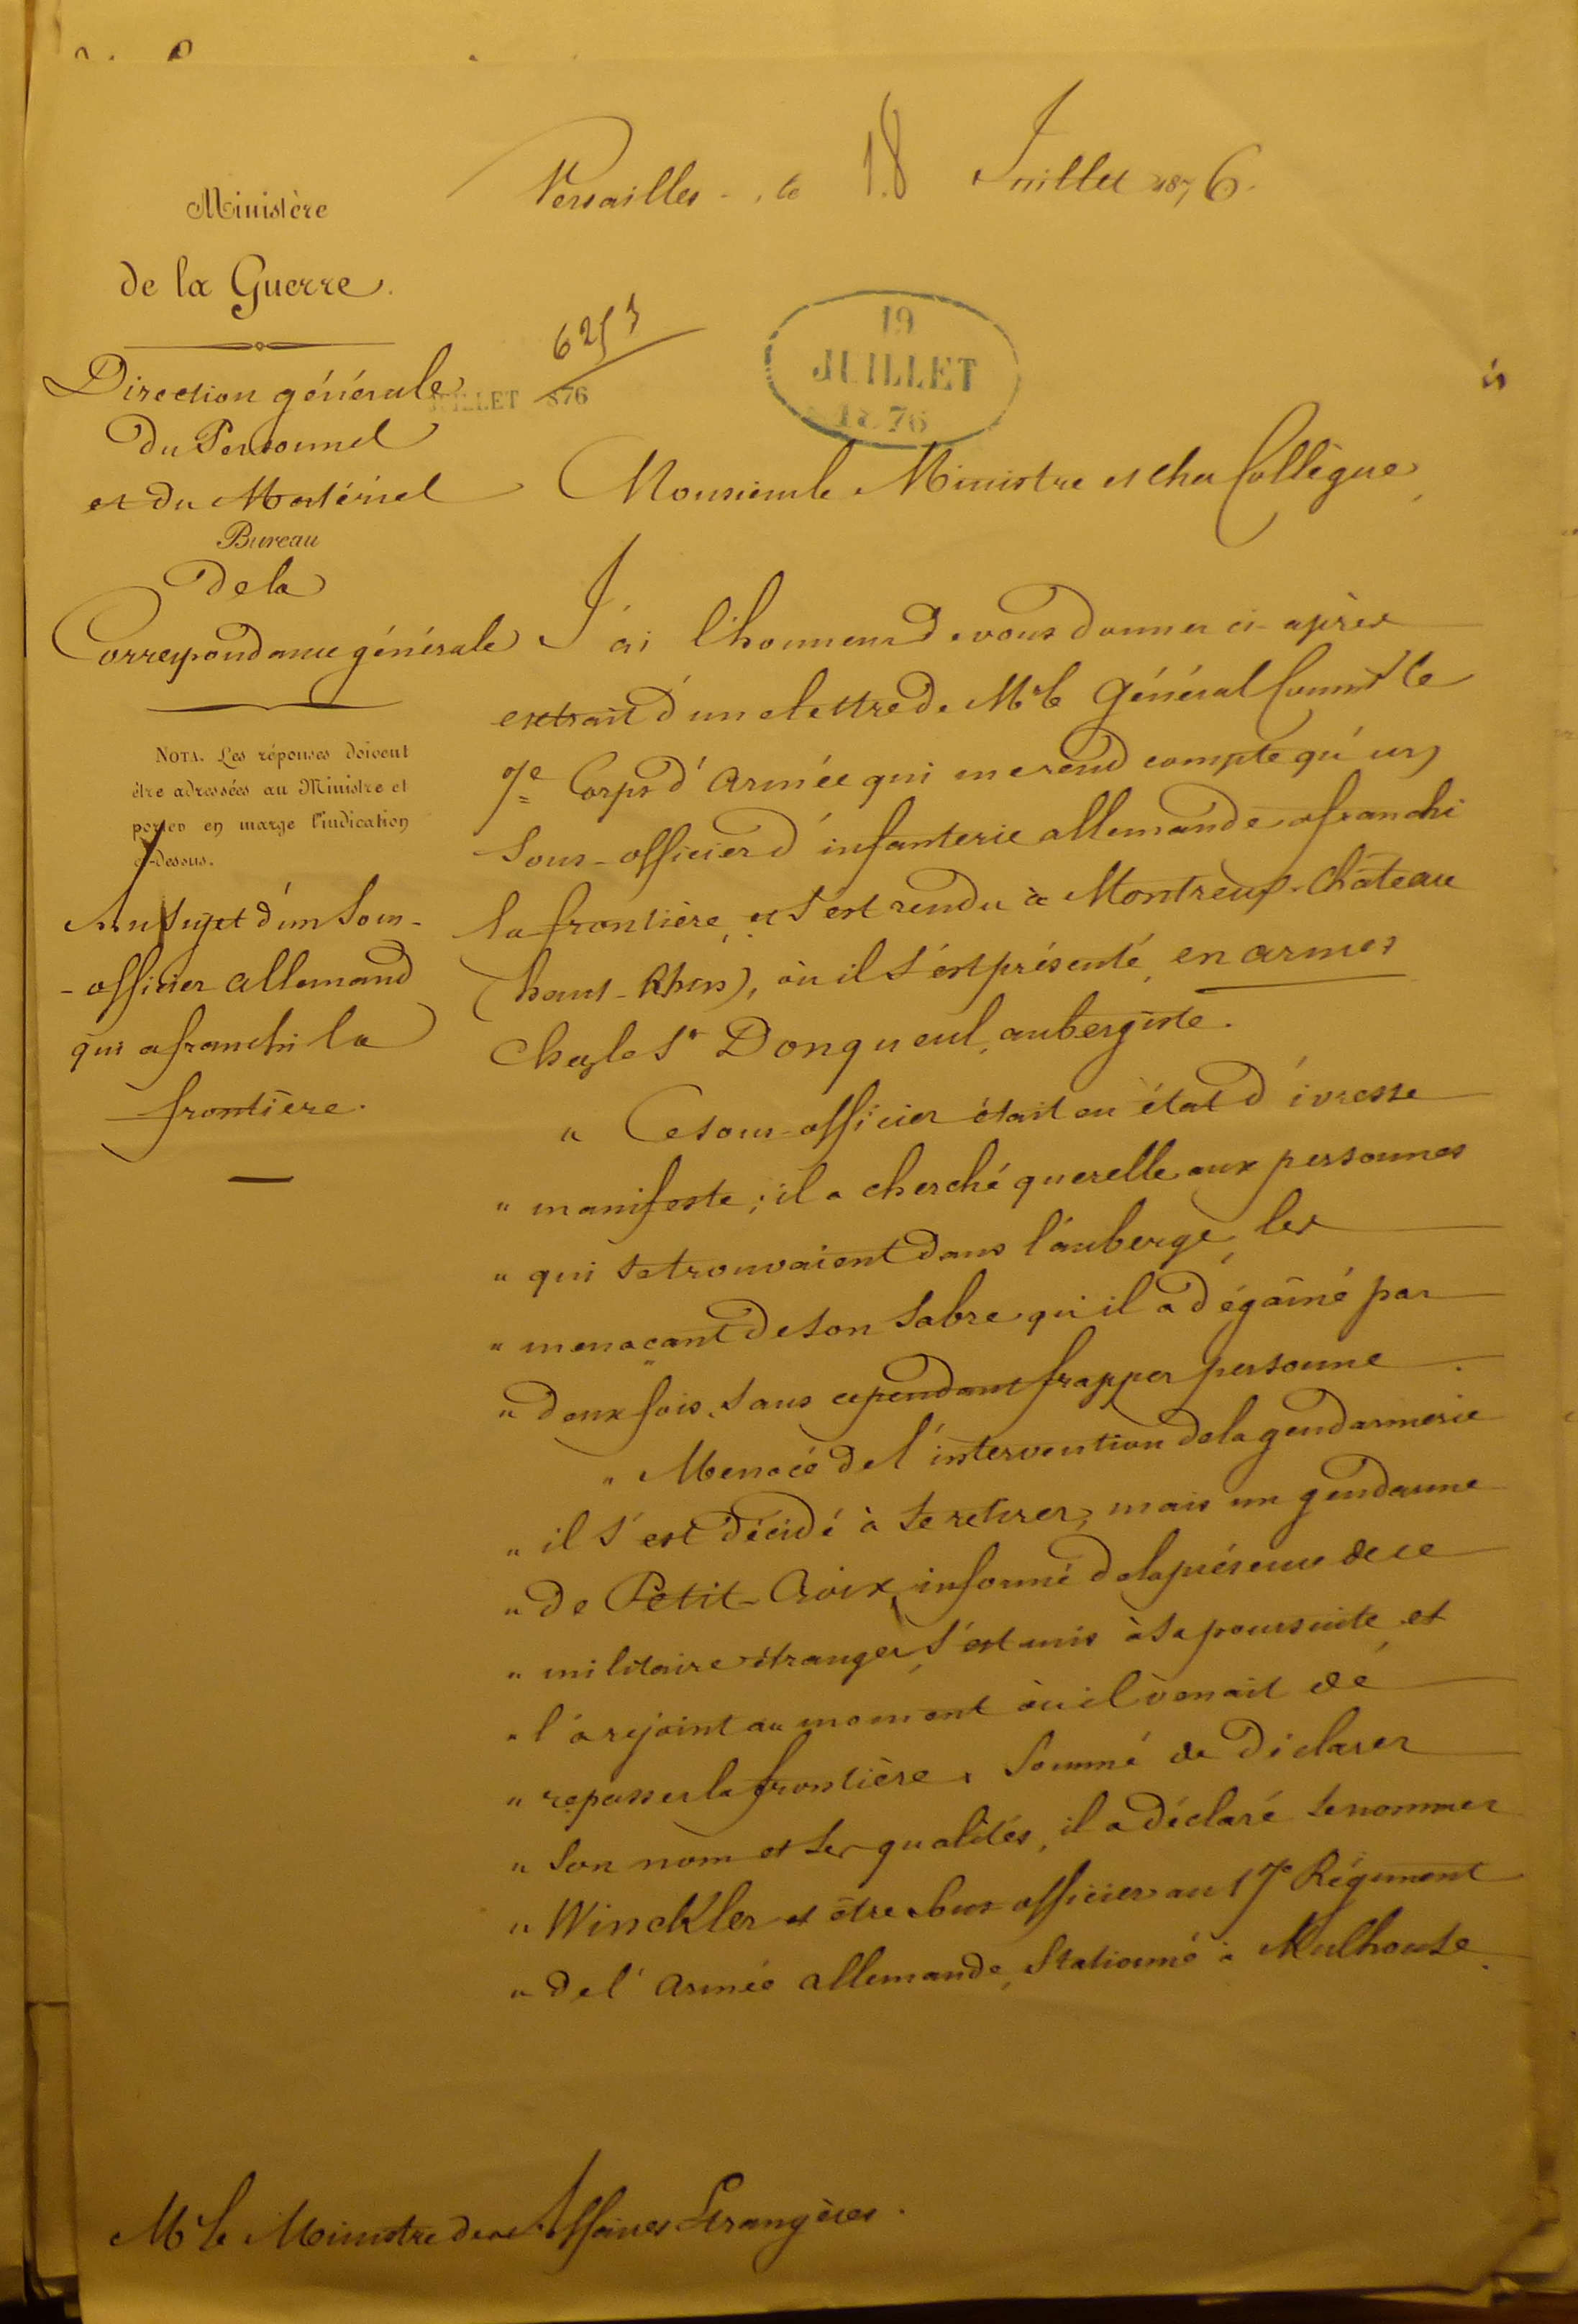 Versailles, le 18 Juillet 1876.
Ministère
de la Guerre.
Direction générale
du Personnel
et du Matériel
Bureau
de la
Correspondance générale
NOTA. Les réponses doivent
être adressées au Ministre et
porter en marge l'indication
ci-dessus.
Au sujet d'un Sous-
-officier allemand
qui a franchi la
frontière.
JUILLET 876
19
JUILLET
1876
Monsieur le Ministre et cher Collègue,
J'ai l'honneur de vous donner ci-après
extrait d'une lettre de Mr le Général Commt le
7e Corps d'Armée qui me rend compte qu'un
Sous-officier d'infanterie allemande a franchi
la frontière, et s'est rendu à Montreux-Château
(haut-Rhin), où il s'est présenté, en armes
chez le Sr Donqueul, aubergiste.
" Ce sous-officier était en état d'ivresse
" manifeste ; il a cherché querelle aux personnes
" qui se trouvaient dans l'auberge, les
" menaçant de son sabre qu'il a dégaîné par
" deux fois, sans cependant frapper personne.
" Menacé de l'intervention de la gendarmerie
" il s'est décidé à se retirer, mais un gendarme
" de Petit-Croix, informé de la présence de ce
" militaire étranger, s'est mis à sa poursuite, et
" l'a rejoint au moment où il venait de
" repasser la frontière. Sommé de déclarer
" son nom et ses qualités, il a déclaré se nommer
" Winckler et être sous officier au 17e Régiment
" de l'Armée allemande, stationné à Mulhouse.
Mr le Ministre des Affaires Etrangères.